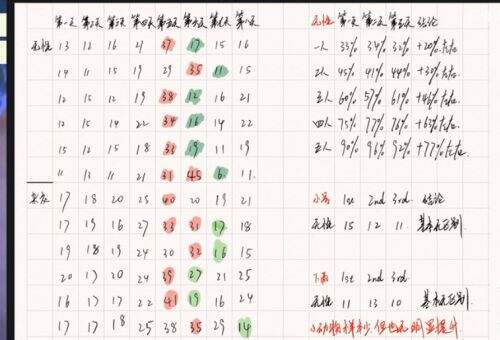 第一天 第二天 第三天 第四天 第五天 第六天 第七天 第八天
无性 13 12 16 21 37 17 15 16
14 11 15 19 29 35 11 15
12 15 12 19 38 12 16 21
12 15 14 22 34 16 14 22
15 12 15 18 38 19 11 19
11 13 11 21 31 45 6 11
17 18 20 25 40 20 19 21
17 19 16 27 33 31 17 18
19 18 19 24 30 32 16 15
20 17 20 24 39 27 21 25
16 17 17 22 41 19 16 24
17 17 18 25 38 35 29 14
无性 第一天 第二天 第三天 结论
一人 33% 34% 32% +20%左右
2人 45% 41% 44% +30%左右
三人 60% 57% 61% +46%左右
四人 75% 77% 76% +63%左右
五人 90% 96% 92% +77%左右
1st 2nd 3rd 结论
无性 15 12 11 基本无区别
下雨 1st 2nd 3rd
无性 11 13 10 基本无区别